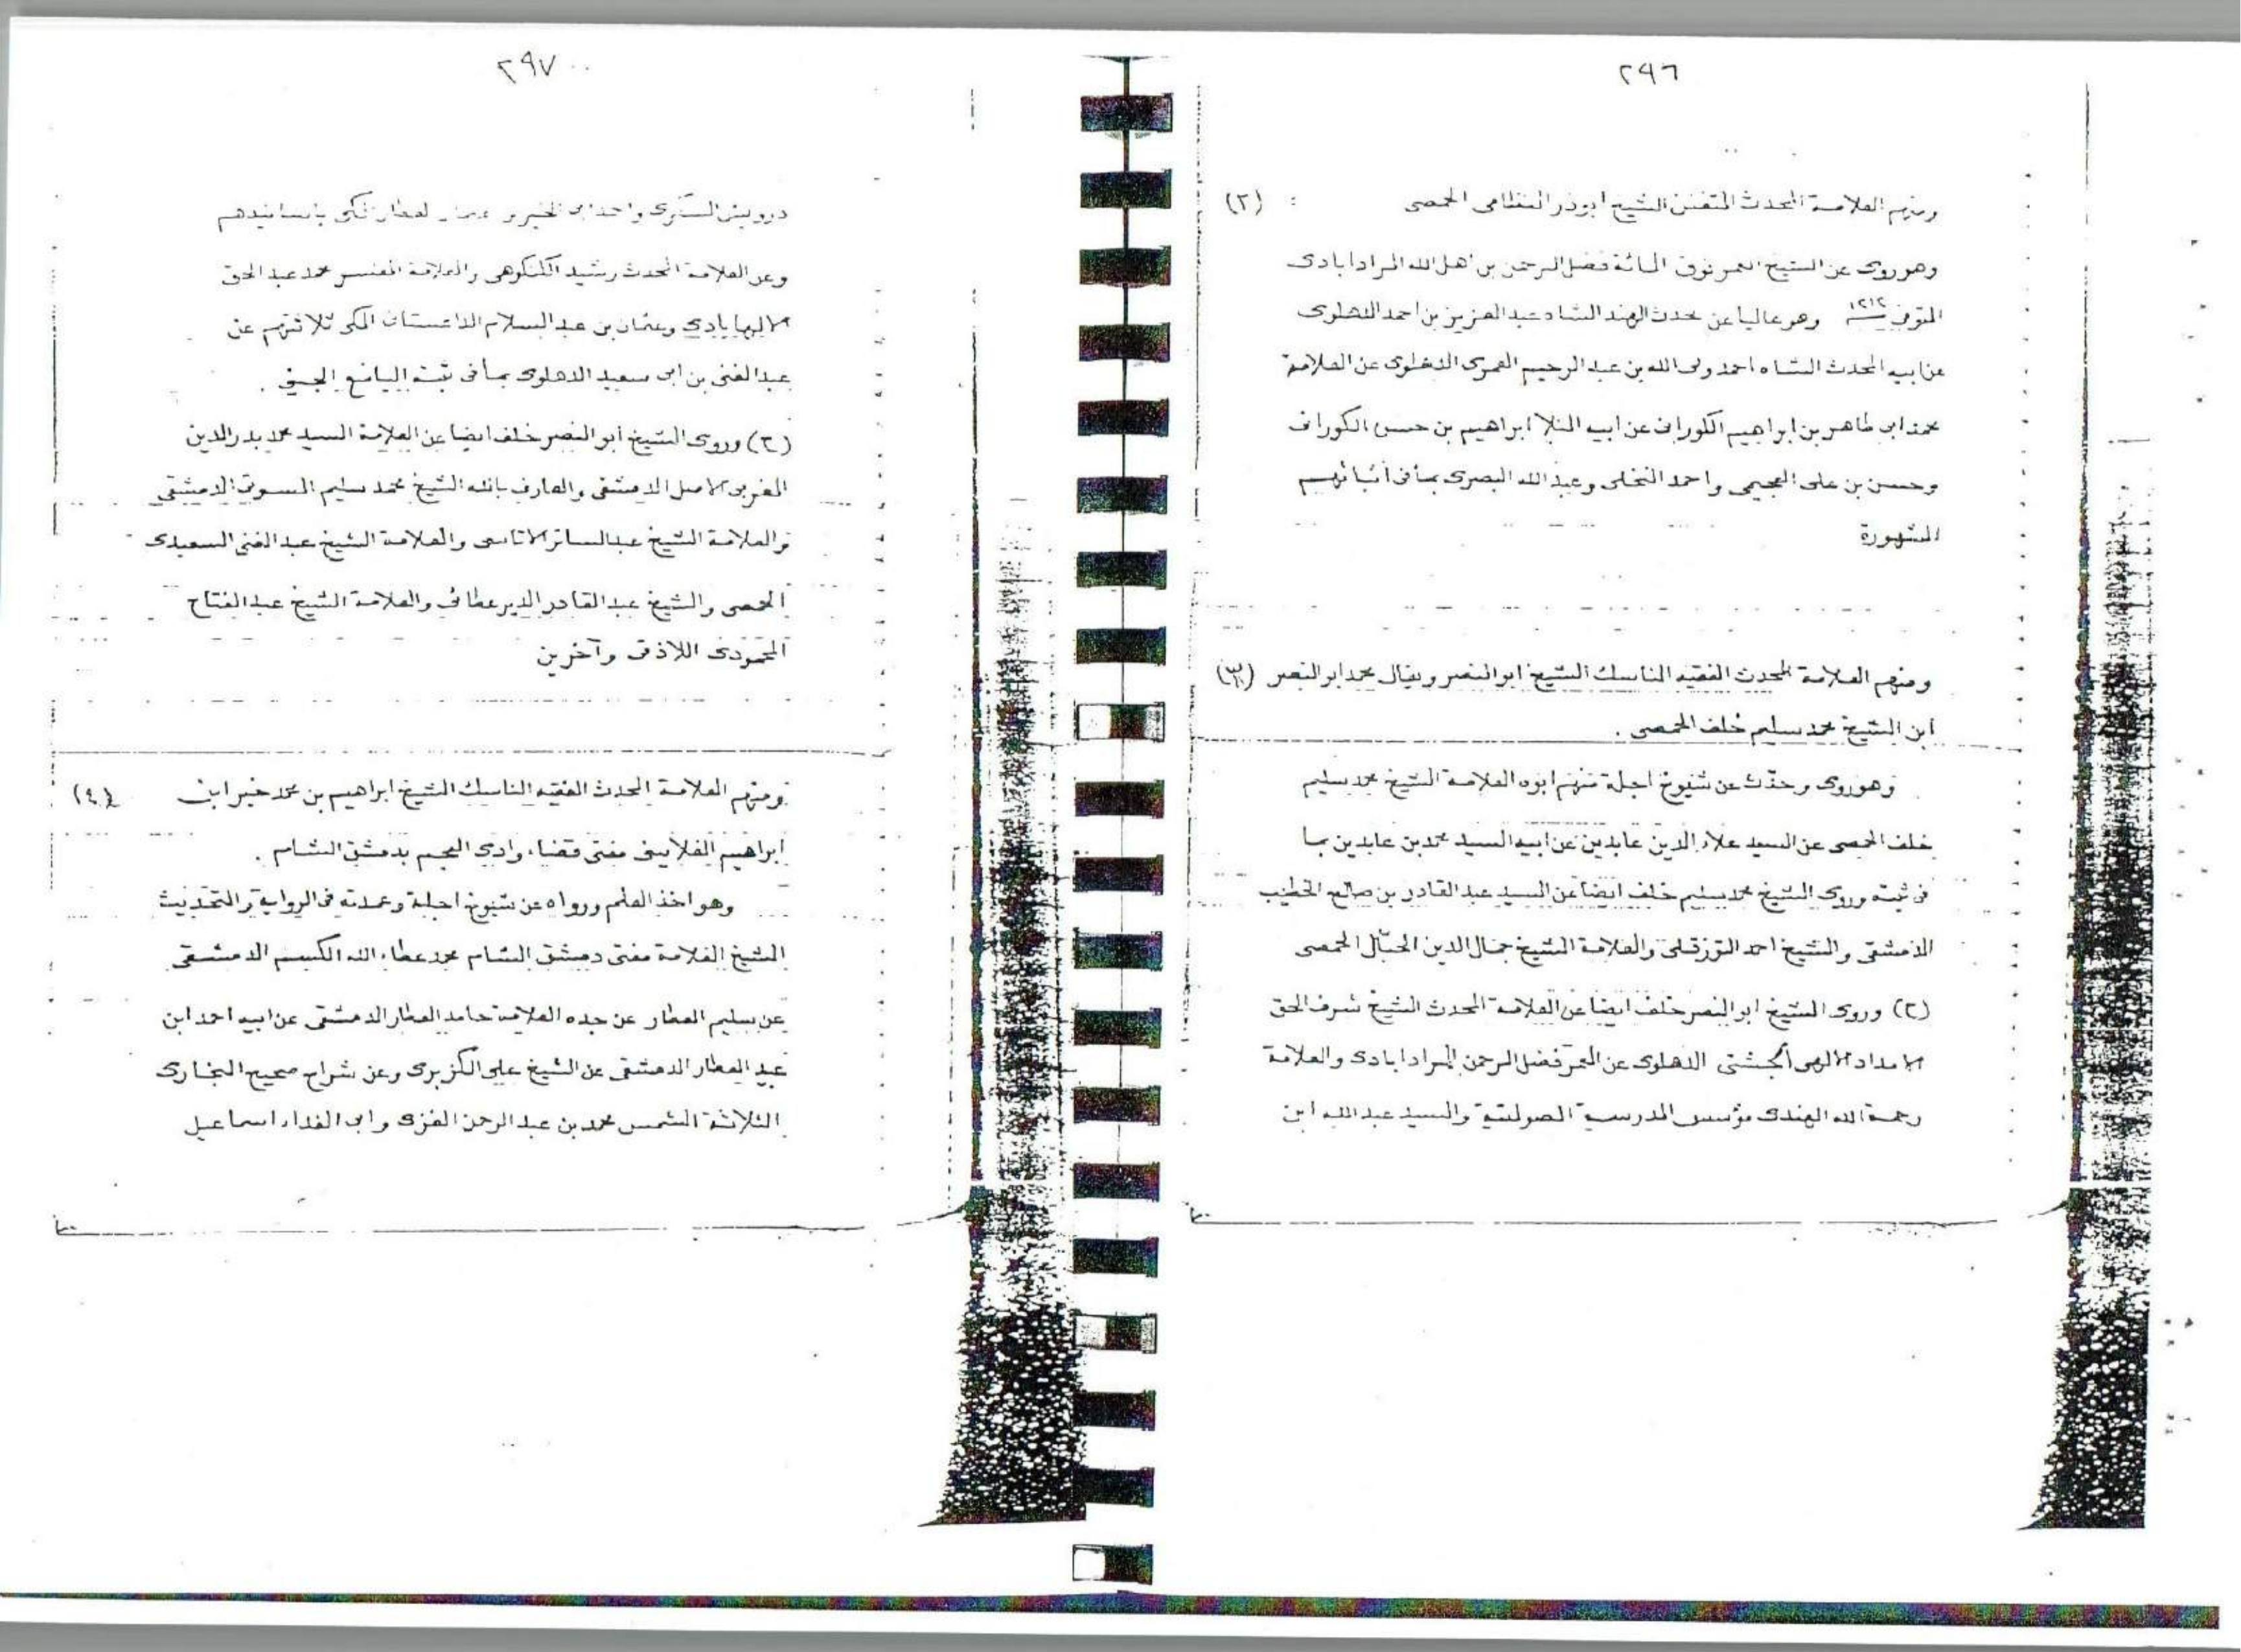 ٢٩٦
ومنهم العلامة المحدث المتفنن الشيخ ابوذر النظامى الحمصى : (٢)
وهو روى عن الشيخ المعمر فوق المائة فضل الرحمن بن اهل الله المرادابادى
المتوفى سنة وهو عاليا عن محدث الهند الشاه عبد العزيز بن احمد الدهلوى
عن ابيه المحدث الشاه احمد ولى الله بن عبد الرحيم العمرى الدهلوى عن العلامة
محمد ابى طاهر بن ابراهيم الكورانى عن ابيه المنلا ابراهيم بن حسن الكورانى
وحسن بن على العجيمى واحمد النخلى وعبد الله البصرى بما فى اثباتهم
المشهورة
ومنهم العلامة المحدث الفقيه الناسك الشيخ ابو النصر ويقال محمد ابو النصر (٣)
ابن الشيخ محمد سليم خلف الحمصى .
وهو روى وحدّث عن شيوخ اجلة منهم ابوه العلامة الشيخ محمد سليم
خلف الحمصى عن السيد علاء الدين عابدين عن ابيه السيد محمد بن عابدين بما
فى ثبته وروى الشيخ محمد سليم خلف ايضا عن السيد عبد القادر بن صالح الخطيب
الدمشقى والشيخ احمد الترزقلى والعلامة الشيخ جمال الدين الجمّال الحمصى
(٢) وروى الشيخ ابو النصر خلف ايضا عن العلامة المحدث الشيخ شرف الحق
الامداد الالهى الجشتى الدهلوى عن المعمر فضل الرحمن المرادابادى والعلامة
رحمة الله الهندى مؤسس المدرسة الصولتية والسيد عبد الله ابن
٢٩٧
درويش السكرى واحمد ابى الخير العطار المكى باسانيدهم
وعن العلامة المحدث رشيد الكنكوهى والعلامة المفسر محمد عبد الحق
الالهابادى وعثمان بن عبد السلام الداغستانى المكى ثلاثتهم عن
عبد الغنى بن ابى سعيد الدهلوى بما فى ثبته اليانع الجنى .
(٣) وروى الشيخ ابو النصر خلف ايضا عن العلامة السيد محمد بدر الدين
المغربى الاصل الدمشقى والعارف بالله الشيخ محمد سليم المسوتى الدمشقى
والعلامة الشيخ عبد الساتر الاتاسى والعلامة الشيخ عبد الغنى السعيدى
الحمصى والشيخ عبد القادر الديرعطانى والعلامة الشيخ عبد الفتاح
المحمودى اللاذقى وآخرين
ومنهم العلامة المحدث الفقيه الناسك الشيخ ابراهيم بن محمد خير ابن (٤)
ابراهيم الغلايينى مفتى قضاء وادى العجم بدمشق الشام .
وهو اخذ العلم ورواه عن شيوخ اجلة وعمدته فى الرواية والتحديث
الشيخ العلامة مفتى دمشق الشام محمد عطاء الله الكسم الدمشقى
عن سليم العطار عن جده العلامة حامد العطار الدمشقى عن ابيه احمد ابن
عبيد العطار الدمشقى عن الشيخ على الكزبرى وعن شراح صحيح البخارى
الثلاثة الشمس محمد بن عبد الرحمن الغزى وابى الفداء اسماعيل